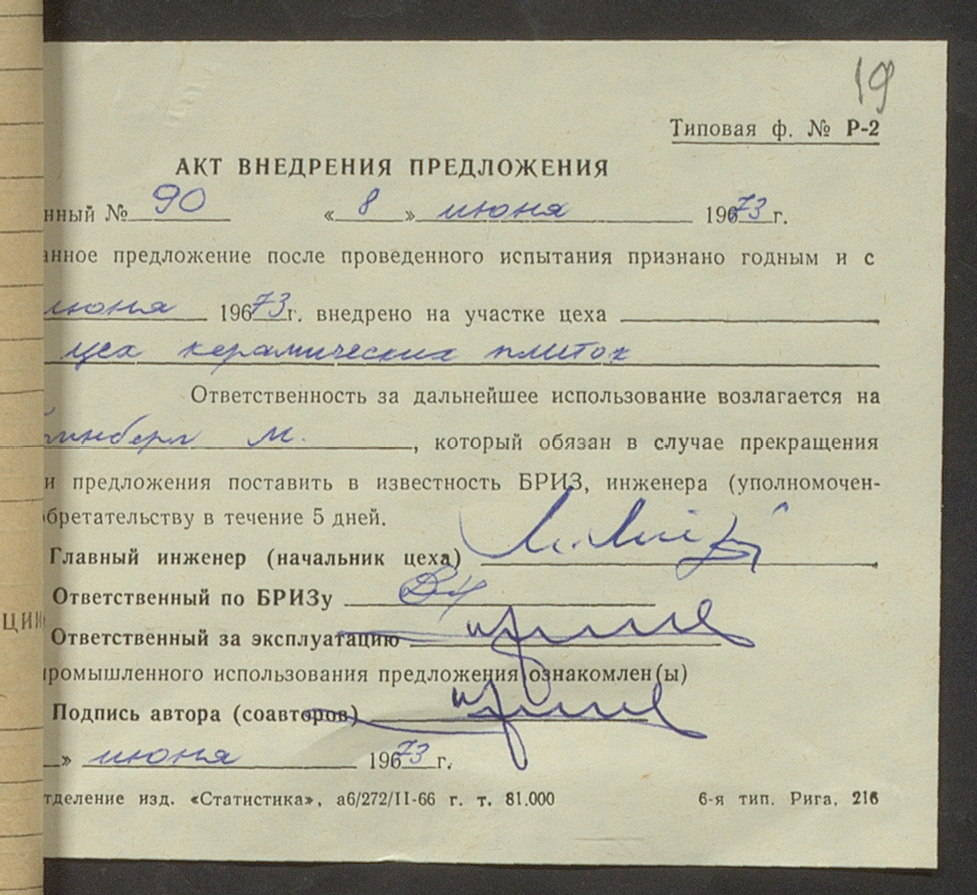 19
Типовая ф. № Р-2
АКТ ВНЕДРЕНИЯ ПРЕДЛОЖЕНИЯ
нный № 90 « 8 » июня 1973 г.
анное предложение после проведенного испытания признано годным и с
июня 1973 г. внедрено на участке цеха
цех керамических плиток
Ответственность за дальнейшее использование возлагается на
инберг М. , который обязан в случае прекращения
и предложения поставить в известность БРИЗ, инженера (уполномочен-
обретательству в течение 5 дней.
Главный инженер (начальник цеха)
Ответственный по БРИЗу
ЦИИ
Ответственный за эксплуатацию
промышленного использования предложения ознакомлен(ы)
Подпись автора (соавторов)
» июня 1973 г.
тделение изд. «Статистика», а6/272/II-66 г. т. 81.000 6-я тип. Рига, 216